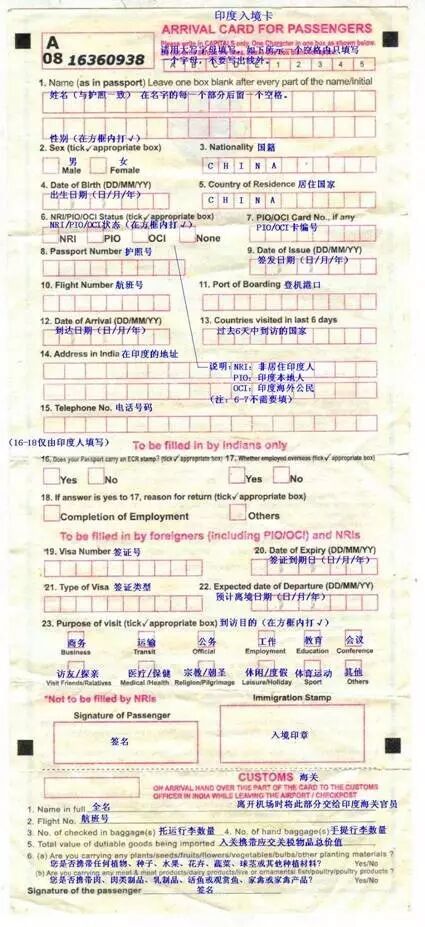 印度入境卡
ARRIVAL CARD FOR PASSENGERS
Please write in CAPITALS only. One Character in one box as shown below.
请用大写字母填写。如下所示一个空格内只填写
一个字母,不要写出线外。
A B C D E 1 2 3 4 5
A
08 16360938
1. Name (as in passport) Leave one box blank after every part of the name/initial
姓名(与护照一致) 在名字的每一个部分后留一个空格。
性别(在方框内打√)
2. Sex (tick✓appropriate box)
3. Nationality 国籍
男 女
Male Female
C H I N A
4. Date of Birth (DD/MM/YY)
出生日期(日/月/年)
5. Country of Residence 居住国家
C H I N A
6. NRI/PIO/OCI Status (tick✓appropriate box)
NRI/PIO/OCI状态(在方框内打√)
7. PIO/OCI Card No., if any
PIO/OCI卡编号
NRI PIO OCI None
8. Passport Number 护照号
9. Date of Issue (DD/MM/YY)
签发日期(日/月/年)
10. Flight Number 航班号
11. Port of Boarding 登机港口
12. Date of Arrival (DD/MM/YY)
到达日期(日/月/年)
13. Countries visited in last 6 days
过去6天中到访的国家
14. Address in India 在印度的地址
说明:NRI:非居住印度人
PIO:印度本地人
OCI:印度海外公民
(注:6-7不需要填)
15. Telephone No. 电话号码
(16-18仅由印度人填写)
To be filled in by Indians only
16. Does your Passport carry an ECR stamp? (tick✓appropriate box) 17. Whether employed overseas (tick✓appropriate box)
Yes No Yes No
18. If answer is yes to 17, reason for return (tick✓appropriate box)
Completion of Employment Others
To be filled in by foreigners (including PIO/OCI) and NRIs
19. Visa Number 签证号
20. Date of Expiry (DD/MM/YY)
签证到期日(日/月/年)
21. Type of Visa 签证类型
22. Expected date of Departure (DD/MM/YY)
预计离境日期(日/月/年)
23. Purpose of visit (tick✓appropriate box) 到访目的(在方框内打√)
商务 运输 公务 工作 教育 会议
Business Transit Official Employment Education Conference
访友/探亲 医疗/保健 宗教/朝圣 休闲/度假 体育运动 其他
Visit Friends/Relatives Medical /Health Religion/Pilgrimage Leisure/Holiday Sport Others
*Not to be filled by NRIs
Immigration Stamp
Signature of Passenger
签名
入境印章
CUSTOMS 海关
ON ARRIVAL HAND OVER THIS PART OF THE CARD TO THE CUSTOMS
OFFICER IN INDIA WHILE LEAVING THE AIRPORT / CHECKPOST
离开机场时将此部分交给印度海关官员
1. Name in full 全名
2. Flight No. 航班号
3. No. of checked in baggage(s) 托运行李数量 4. No. of hand baggage(s) 手提行李数量
5. Total value of dutiable goods being imported 入关携带应交关税物品总价值
6. (a) Are you carrying any plants/seeds/fruits/flowers/vegetables/bulbs/other planting materials ?
您是否携带任何植物、种子、水果、花卉、蔬菜、球茎或其他种植材料? Yes/No
(b) Are you carrying any meat & meat products/dairy products/live or ornamental fish/poultry/poultry products ?
您是否携带肉、肉类制品、乳制品、活鱼或观赏鱼、家禽或家禽产品? Yes/No
Signature of the passenger 签名